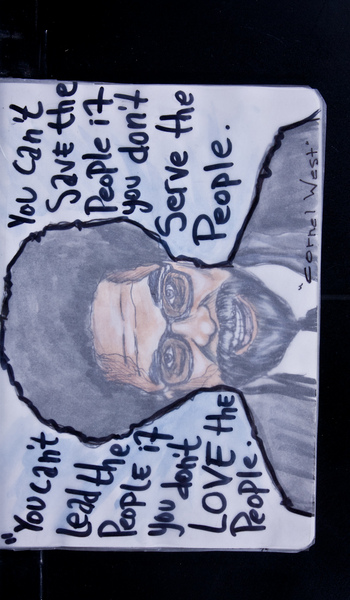 "You can't
Lead the
People if
you don't
LOVE the
People.
You can't
Save the
People if
you don't
Serve the
People.
"Cornel West"